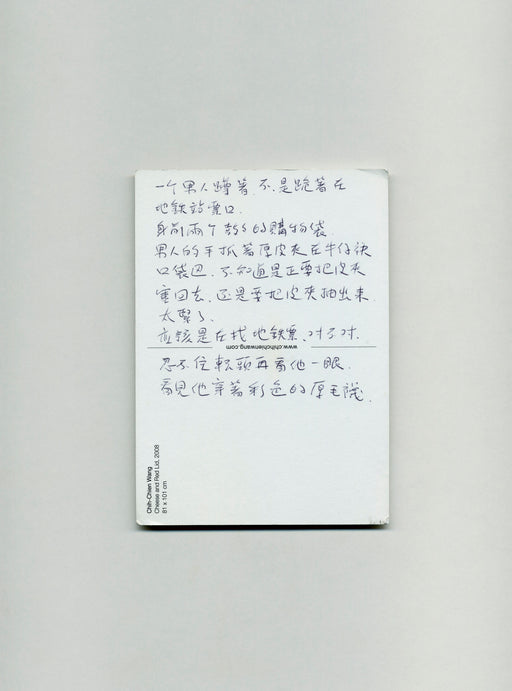 一个男人蹲著.不.是跪著在
地鐵站票口.
身前兩个鼓鼓的購物袋.
男人的手抓著厚皮夾在牛仔褲
口袋巴.不知道是正要把皮夾
塞回去.还是要把皮夾抽出来.
太緊了.
应該是在找地鐵票.对不对.
www.chihchienwang.com
忍不住転頭再看他一眼.
看見他穿著彩色的厚毛襪.
Chih-Chien Wang
Cheese and Red Lid, 2008
81 x 101 cm